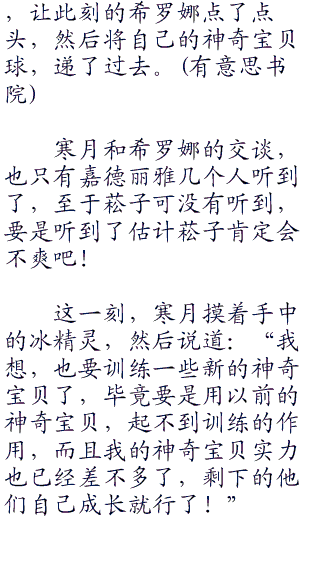 ，让此刻的希罗娜点了点
头，然后将自己的神奇宝贝
球，递了过去。(有意思书
院)
寒月和希罗娜的交谈，
也只有嘉德丽雅几个人听到
了，至于菘子可没有听到，
要是听到了估计菘子肯定会
不爽吧！
这一刻，寒月摸着手中
的冰精灵，然后说道：“我
想，也要训练一些新的神奇
宝贝了，毕竟要是用以前的
神奇宝贝，起不到训练的作
用，而且我的神奇宝贝实力
也已经差不多了，剩下的他
们自己成长就行了！”